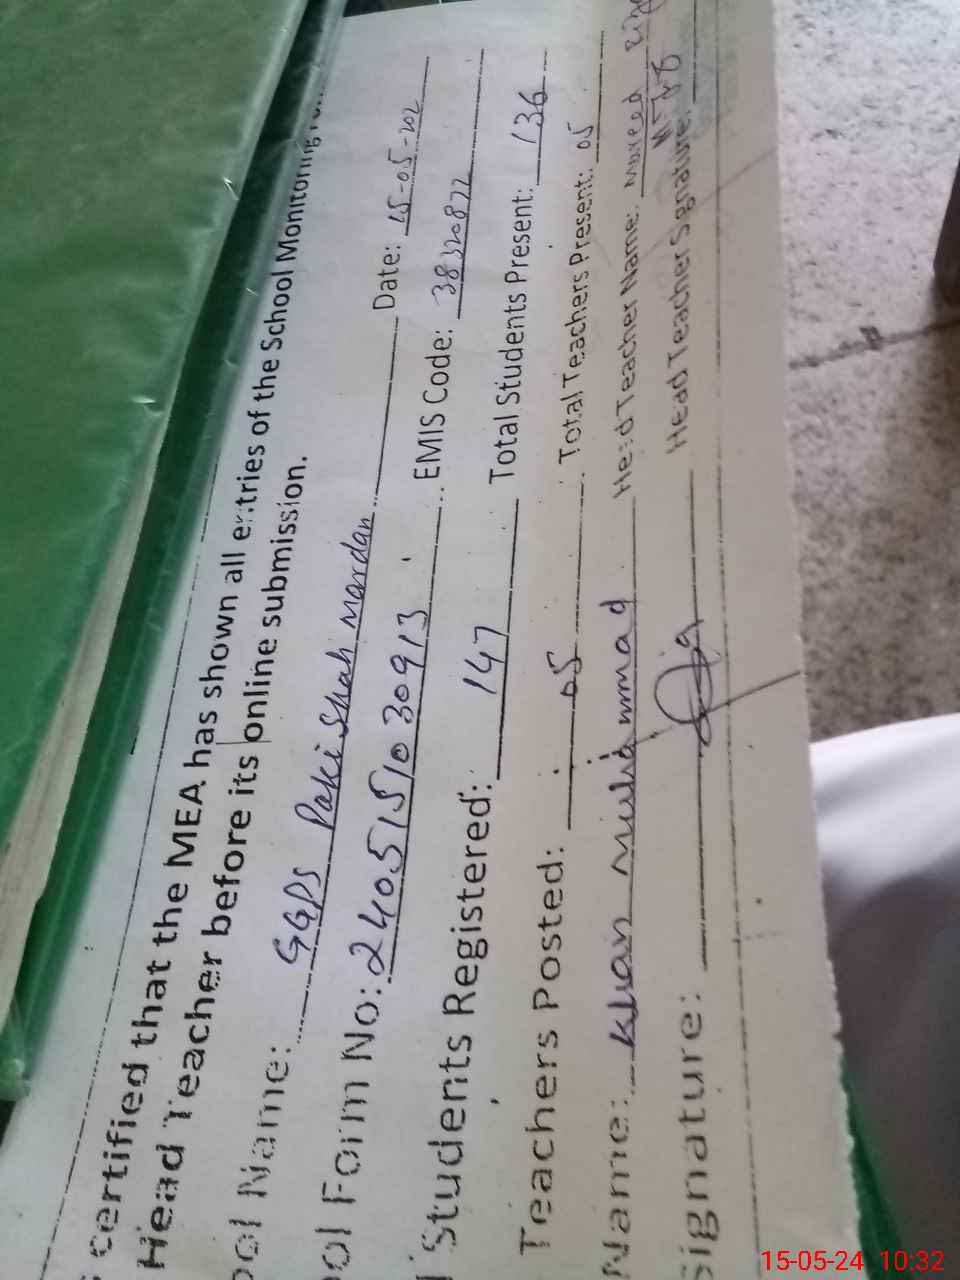 certified that the MEA has shown all entries of the School Monitoring
Head Teacher before its online submission.
Name: GGPS Paki Shah mardan Date: 15-05-202
Form No: 2405151030913 EMIS Code: 38320877
Students Registered: 147 Total Students Present: 136
Teachers Posted: 05 Total Teachers Present: 05
Name: Khan Muhammad Head Teacher Name:
Signature: Head Teacher Signature:
15-05-24 10:32